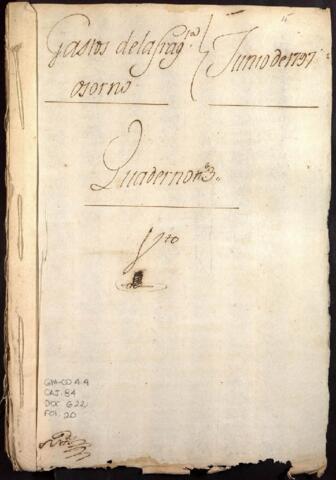 Gastos de la frag.ta } Junio de 1797
osorno
Quaderno n.º 3.
V.to
GM-CO 4.4
CAJ. 84
DOC 622
FOL. 20